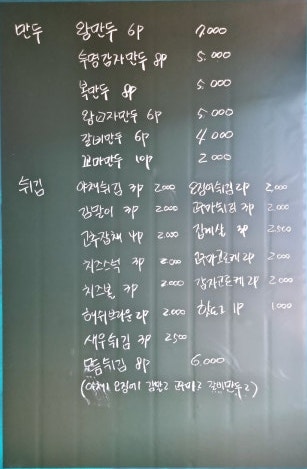 만두 왕만두 6P 7.000
수명감자만두 8P 5.000
복만두 8P 5.000
왕교자만두 6P 5.000
갈비만두 6P 4.000
꼬마만두 10P 2.000
튀김 야채튀김 3P 2.000 오징어튀김 2P 2.000
김말이 3P 2.000 고구마튀김 3P 2.000
고추잡채 4P 2.000 김치살 3P 2.500
치즈스틱 3P 2.000 고구마고로케 2P 2.000
치즈볼 3P 2.000 감자고로케 2P 2.000
해쉬브라운 2P 2.000 핫도그 1P 1.000
새우튀김 3P 2500
모듬튀김 8P 6.000
(야채1 오징어1 김말2 고구마2 갈비만두2)